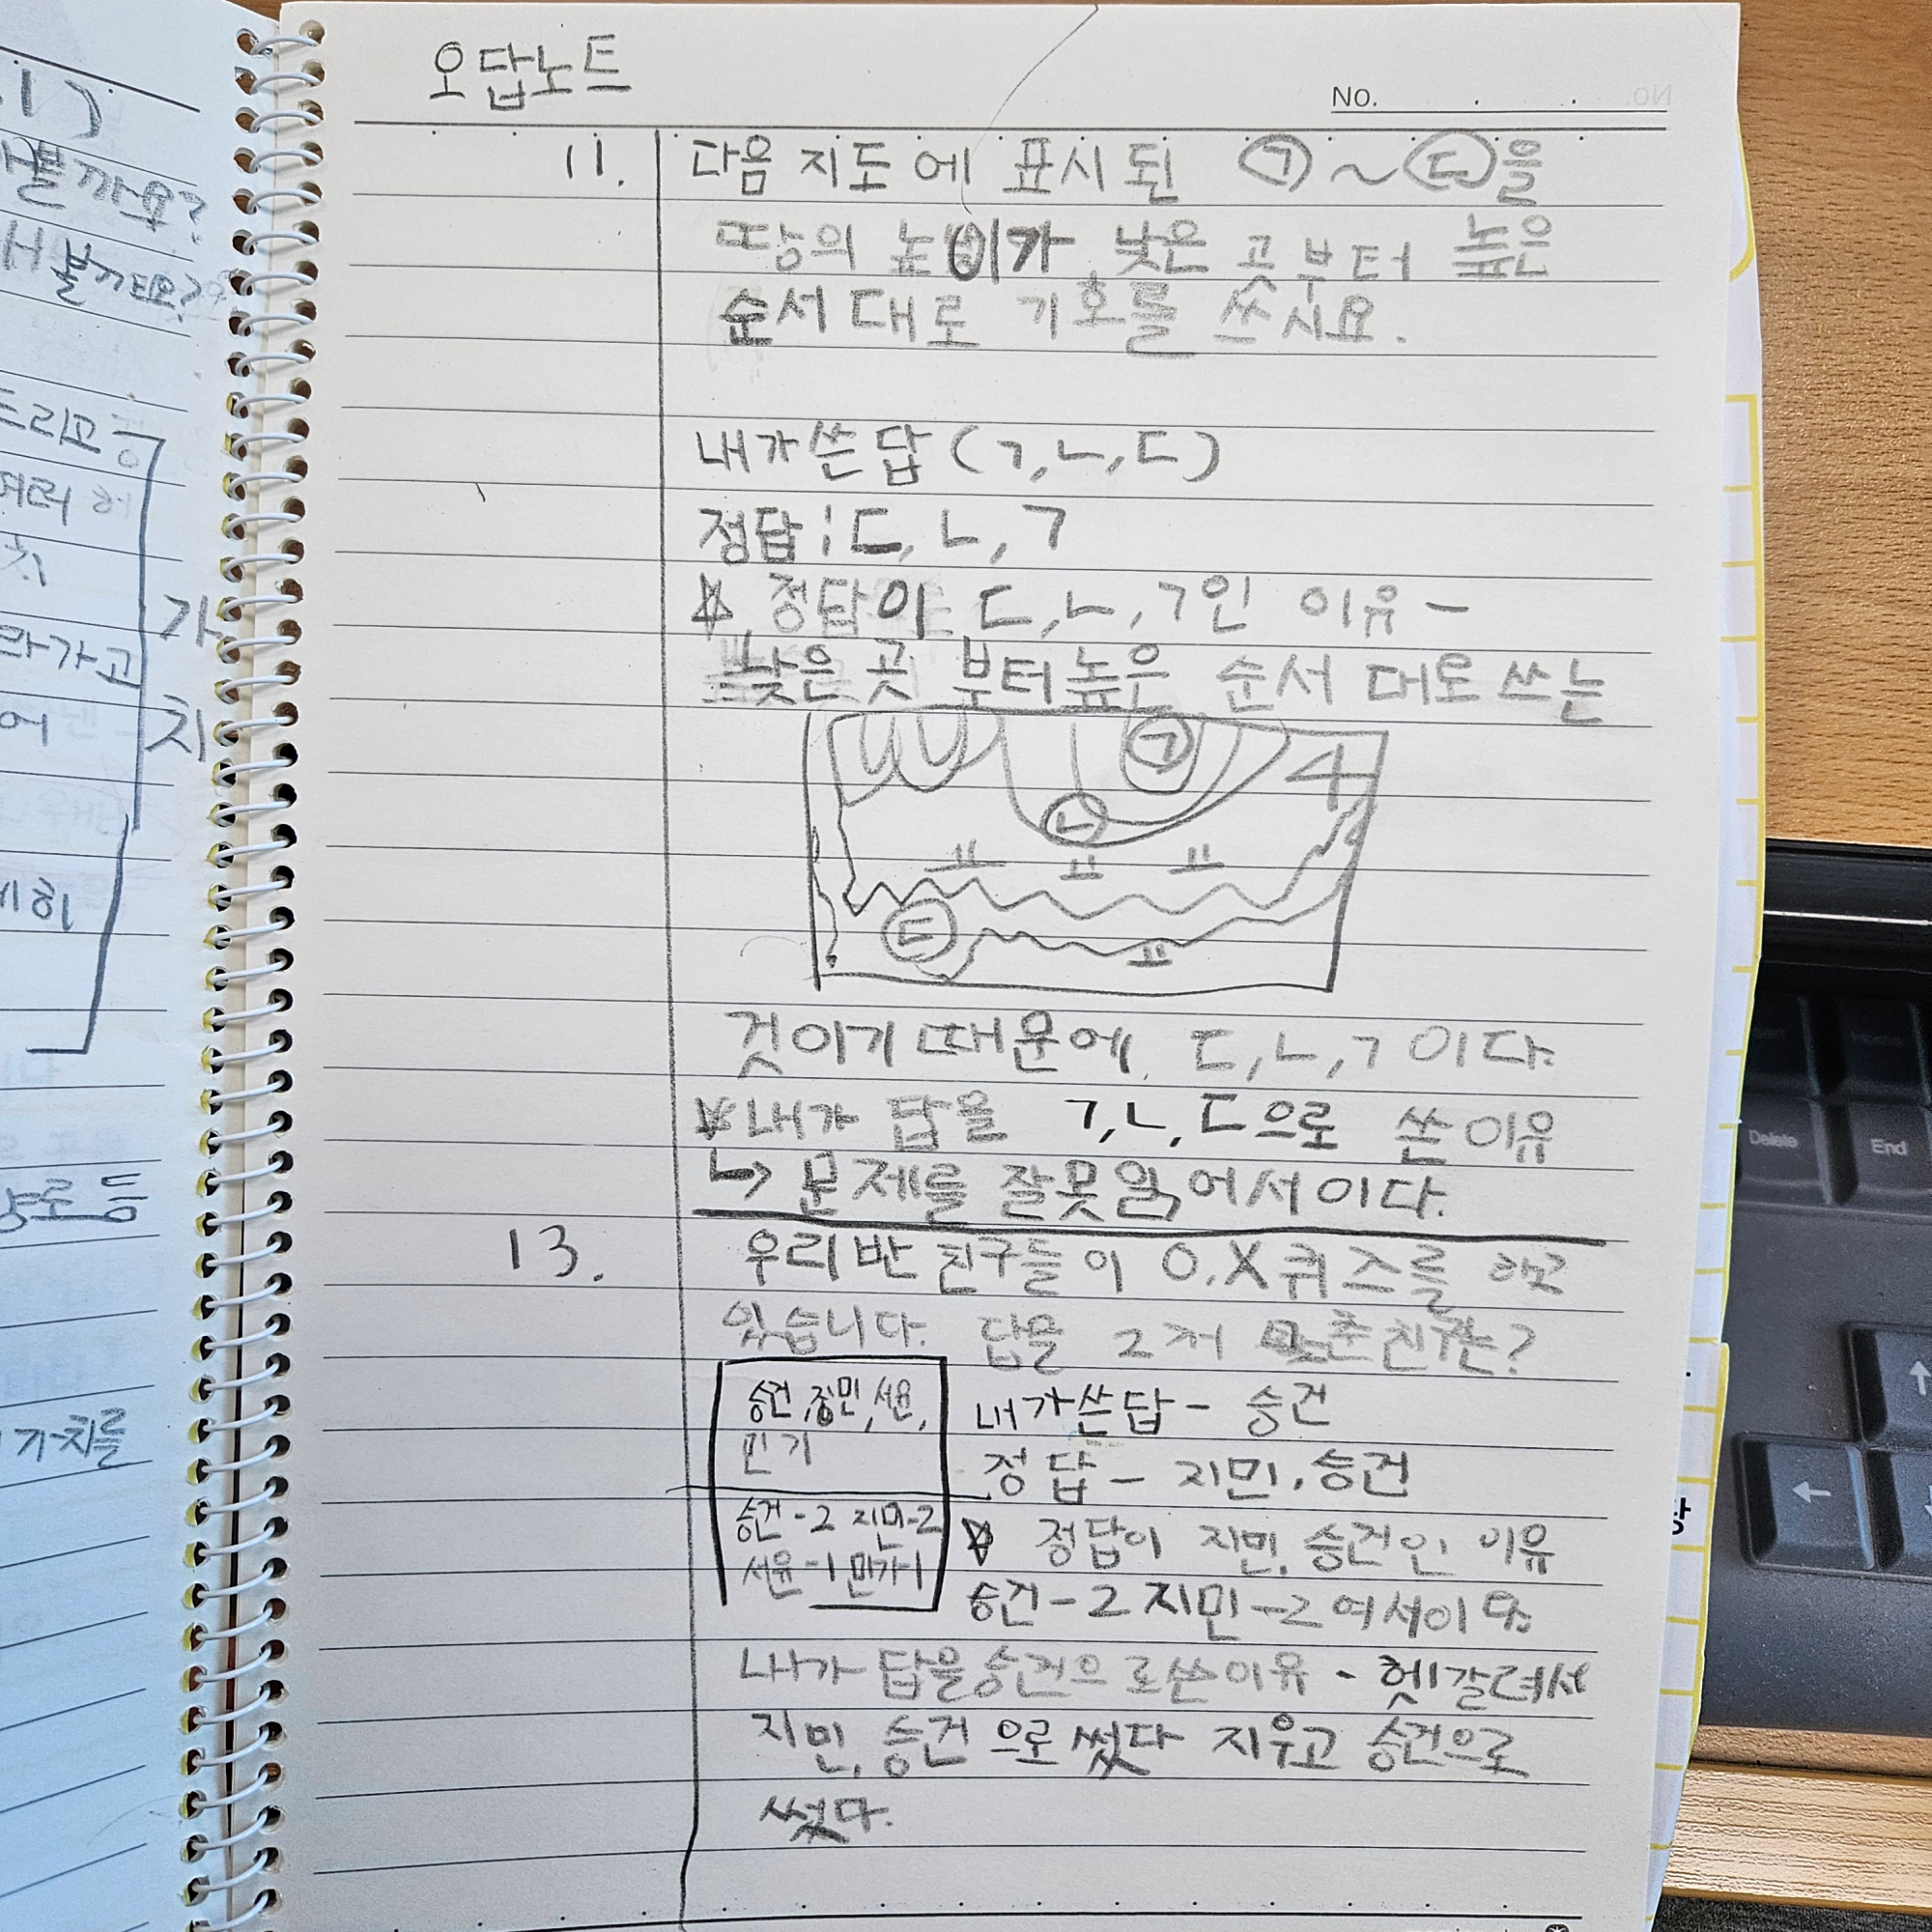 오답노트
No.
11. 다음 지도에 표시된 ㉠~㉢을
땅의 높이가 낮은 곳부터 높은
순서대로 기호를 쓰시오.
내가쓴답(ㄱ,ㄴ,ㄷ)
정답:ㄷ,ㄴ,ㄱ
☆ 정답이 ㄷ,ㄴ,ㄱ인 이유-
낮은 곳 부터 높은 순서 대로 쓰는
㉠
㉡
ㅛ ㅛ ㅛ
㉢
ㅛ
것이기 때문에 ㄷ,ㄴ,ㄱ이다.
☆내가 답을 ㄱ,ㄴ,ㄷ으로 쓴이유
↳ 문제를 잘못읽어서이다.
13. 우리반 친구들이 O,X퀴즈를 하고
있습니다. 답을 2개 맞춘친구는?
승건,지민,서윤,
민기
승건-2 지민-2
서윤-1 민기-1
내가쓴답- 승건
정답- 지민,승건
☆ 정답이 지민,승건인 이유
승건-2 지민-2여서이다
내가 답을승건으로쓴이유 - 헷갈려서
지민,승건으로썼다 지우고 승건으로
썼다.
가
치
라가고
어
세히
가치를
Delete
End
←
↑